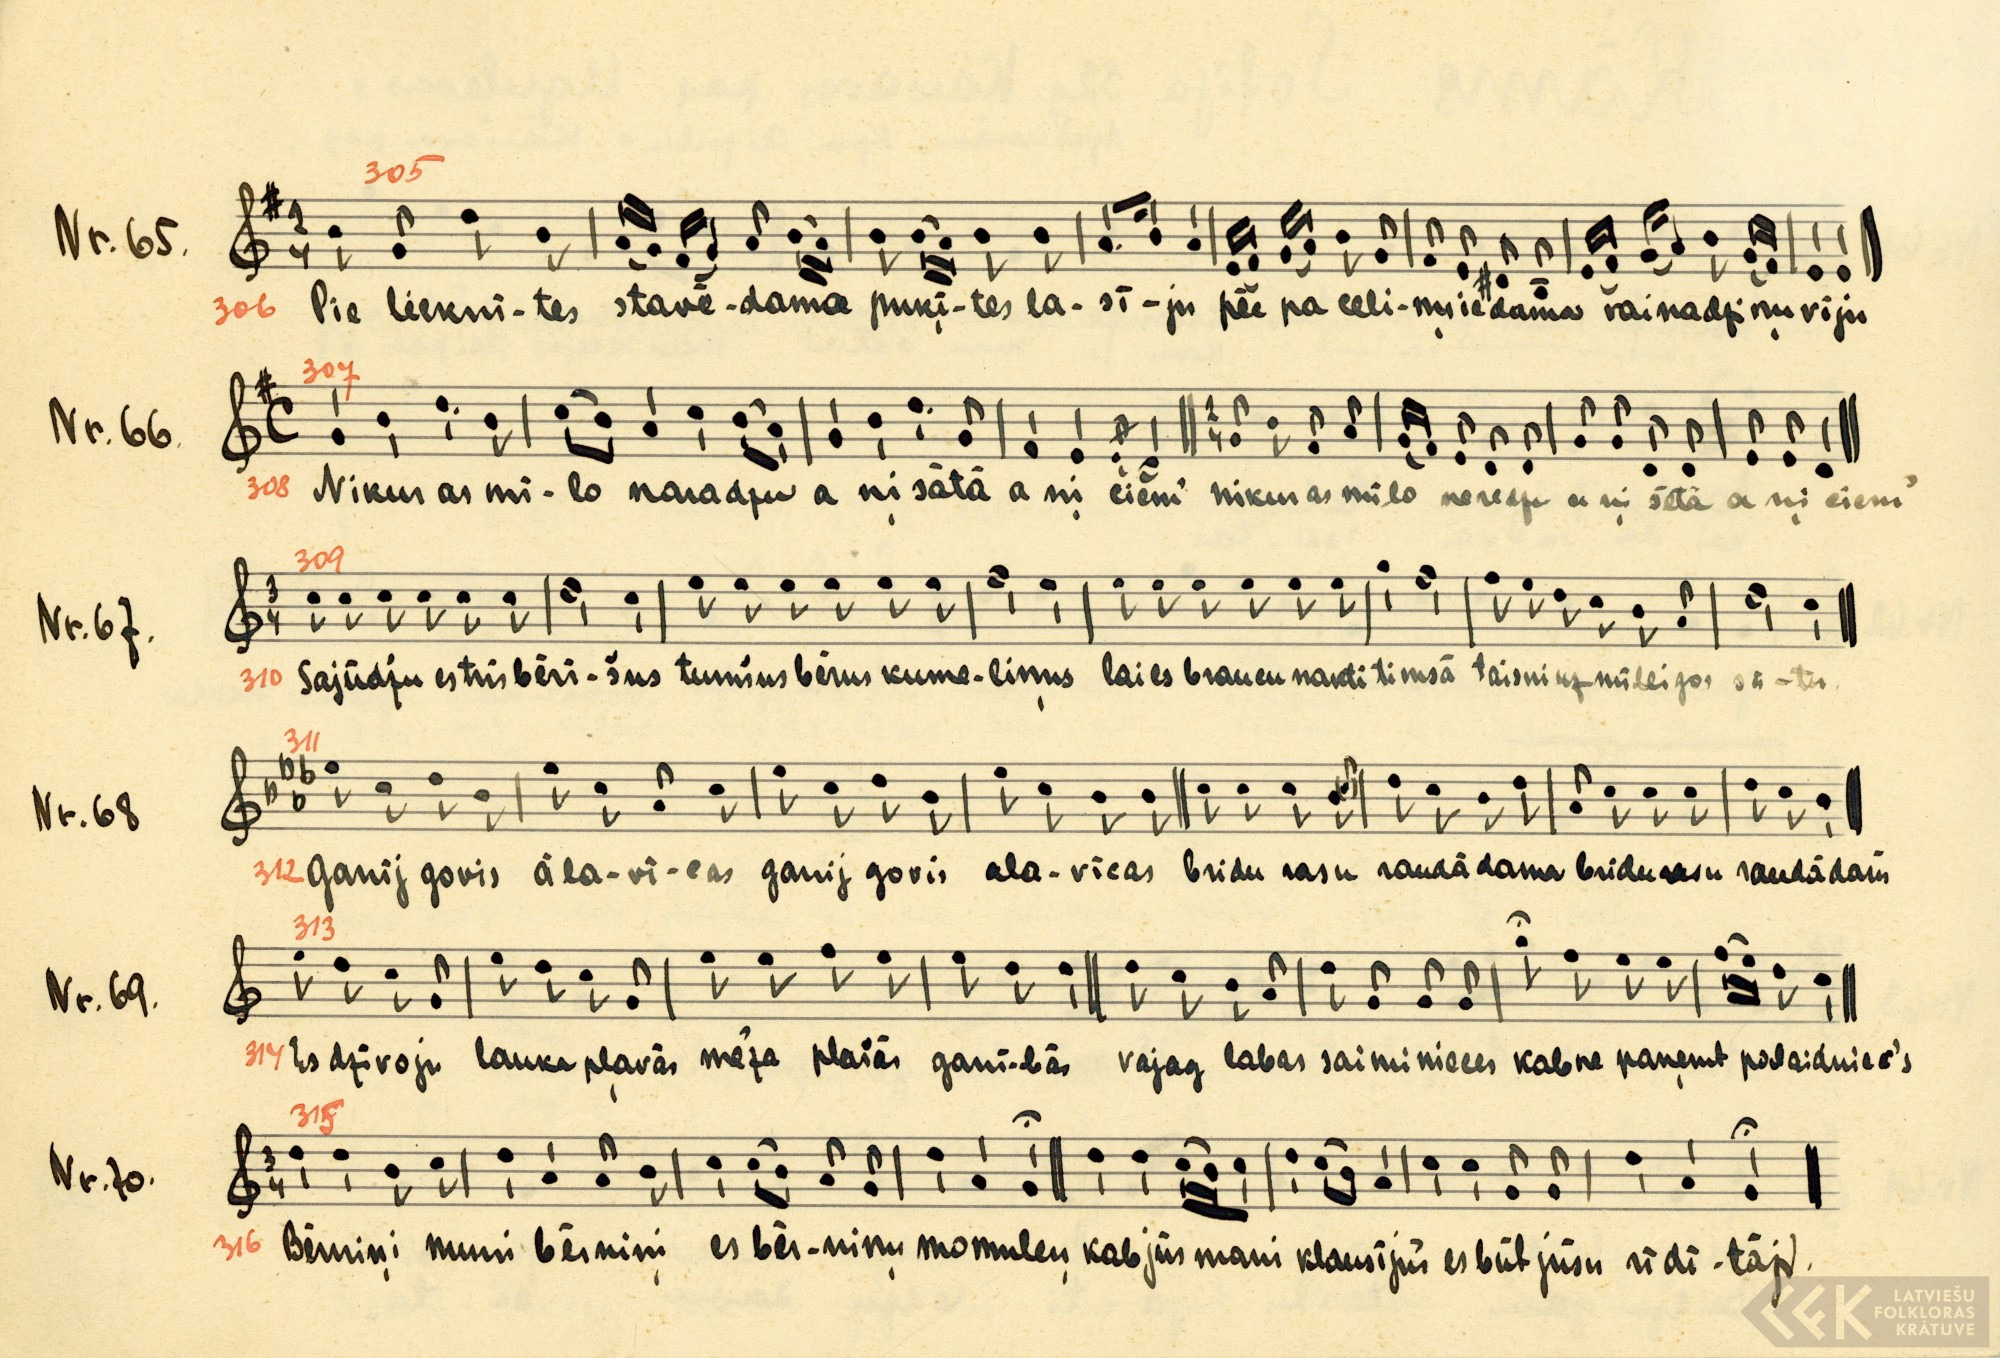 305
Nr. 65.
306 Pie liekni-tes stavē-dama puķi-tes la-sī-ju pēc pa celi-ņu iedama vainadziņu viju
307
Nr. 66.
308 Nikur as mī-lo naradzu a ņi sātā a ņi ciemi nikur as mīlo neredzu a ņi sētā a ņi ciemi
309
Nr. 67.
310 Sajūdzu es trīs bēri-šus tumšus bērus kume-liņus lai es braucu nakti timsā taisni uz mīleigos sā-tu.
311
Nr. 68
312 Ganij govis āla-vī-cas ganij govis ala-vīcas bridu rasu raudādama bridu rasu raudādam
313
Nr. 69.
314 Es dzīvoju lauku pļavās meža plašās ganī-bās vajag labas saiminieces kab ne paņemt palaidniec's
315
Nr. 70.
316 Bērniņi muni bērniņi es bēr-niņu momuleņ kab jūs mani klausījūs es būt jūsu rīdī-tāj.
LATVIEŠU
FOLKLORAS
KRĀTUVE